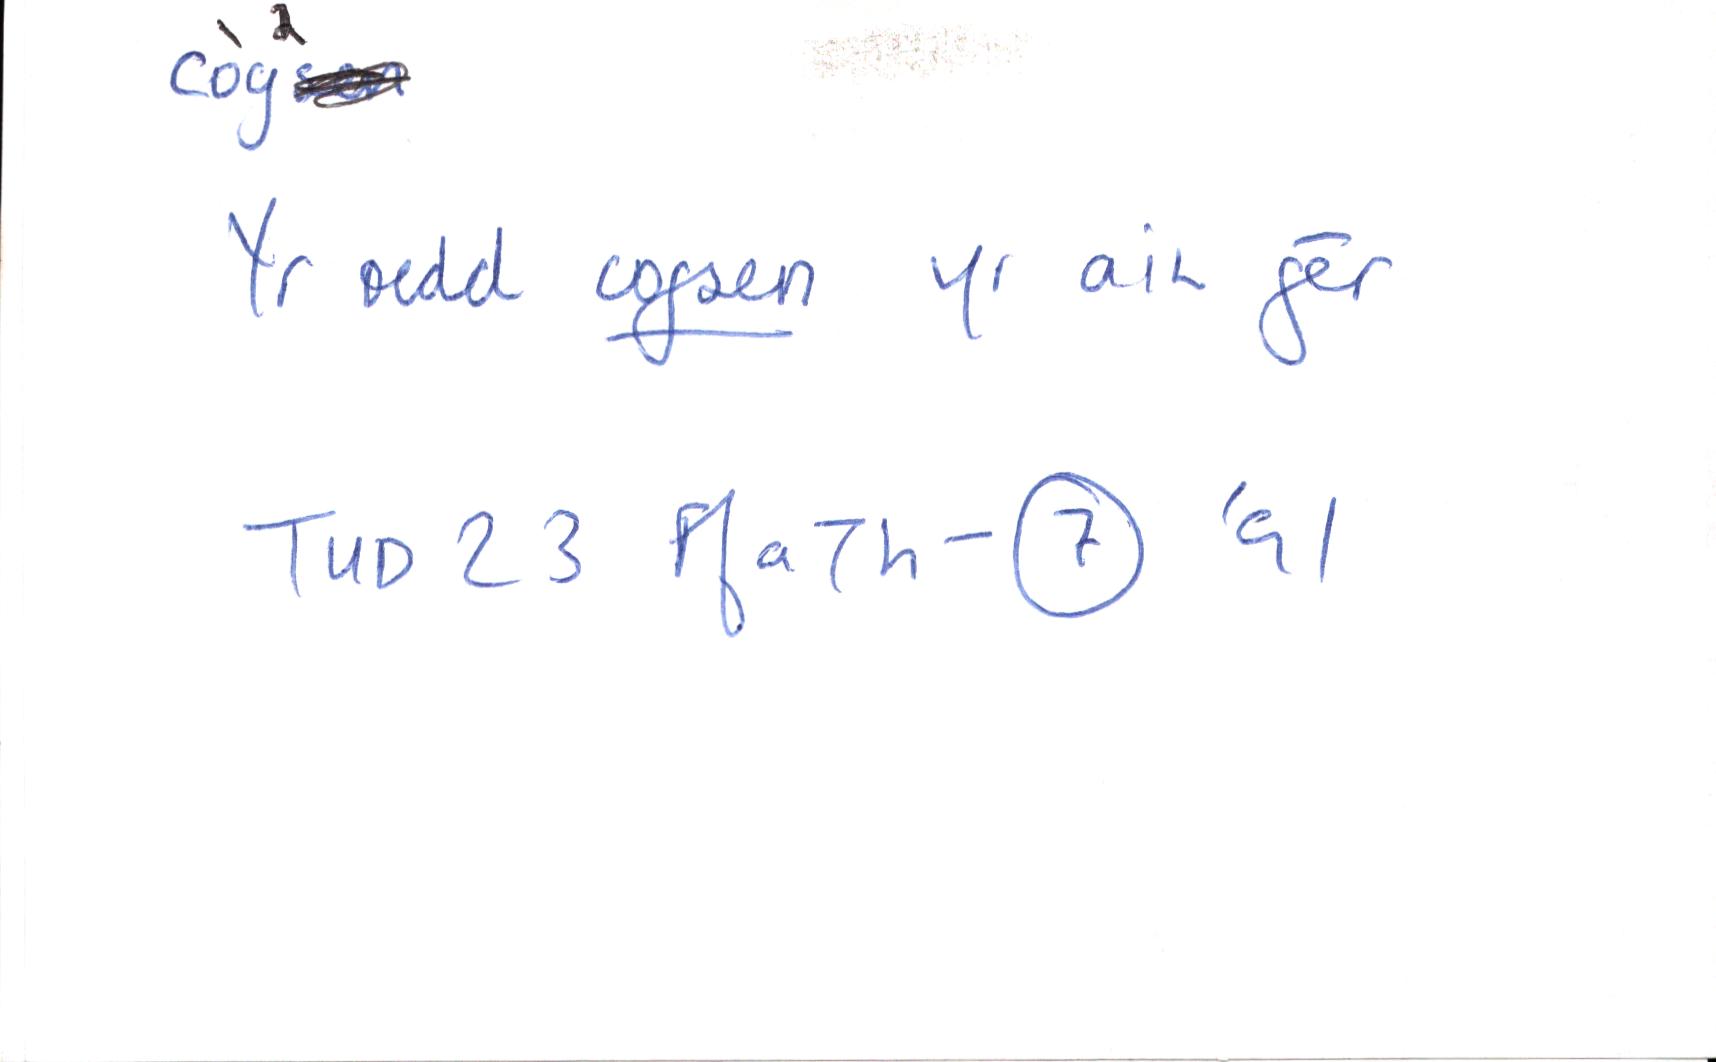 còg²
Yr oedd cogsen yr ain gēr
TUD 23 Pf a Th - 7 '91